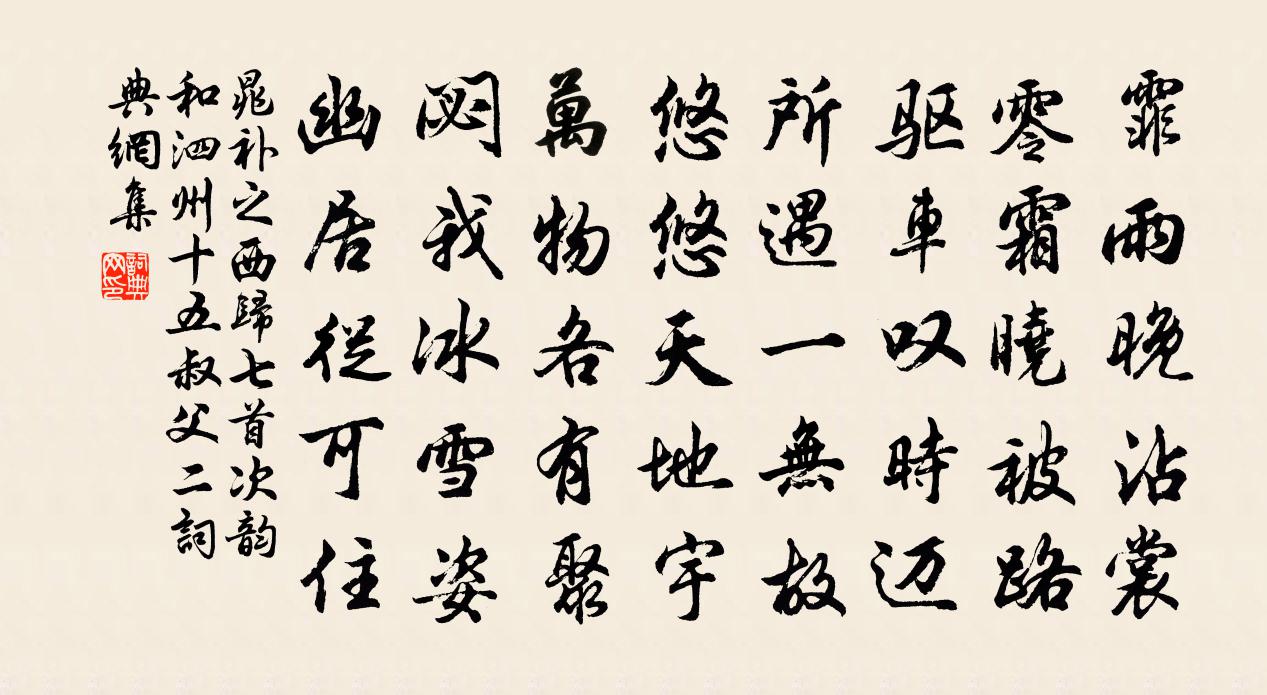 霏雨晚沾裳
零霜曉被路
驱車叹時迈
所遇一無故
悠悠天地宇
萬物各有聚
閟我冰雪姿
幽居從可住
晁补之西歸七首次韵
和泗州十五叔父二詞
典網集
詞典网印